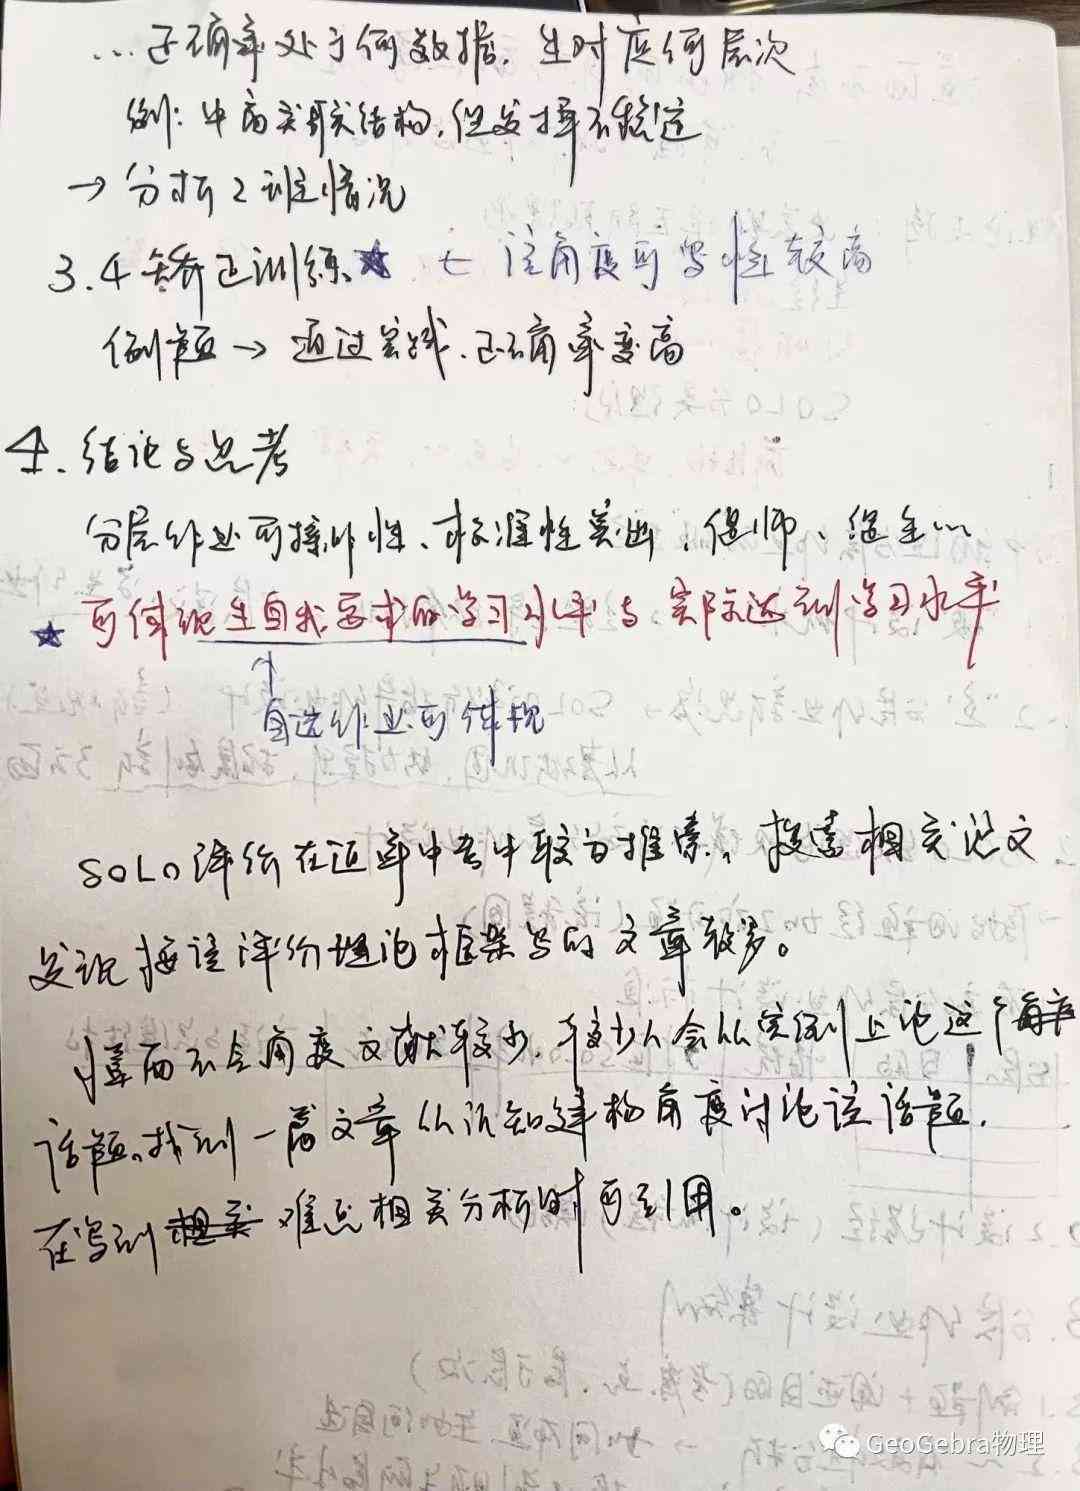 …正确率处于何数据，生对应何层次
例：中高关联结构，但发挥不稳定
→ 分析2班情况
3.4 矫正训练 ★ ← 该角度可写性较高
例题 → 通过实践，正确率变高
4. 结论与思考
分层作业可操作性、标准性突出，促师、促生…
★ 可体现生自我要求的学习水平与实际达到学习水平
自选作业可体现
SOLO评价在近年中考中较为推崇，搜索相关论文
发现按该评价理论框架写的文章较多。
惧而不会角度文献较少，较少人会从实例上论这个
话题。找到一篇文章从认知建构角度讨论该话题，
在写到 难点相关分析时可引用。
GeoGebra物理